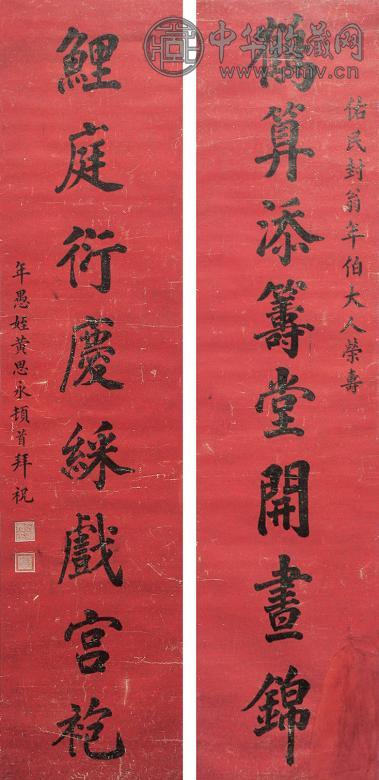 中华收藏网
www.pmv.cn
佑民封翁年伯大人榮壽
鶴算添籌堂開晝錦
鯉庭衍慶綵戲宮袍
年愚姪黄思永頓首拜祝